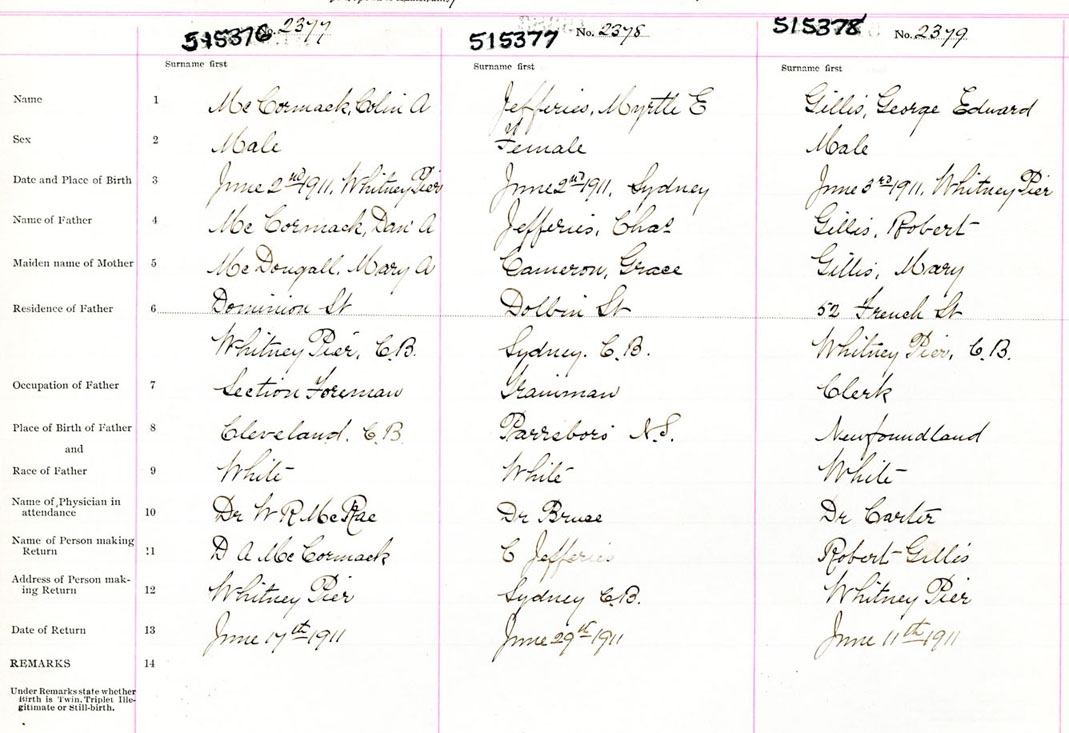 515376 No. 2377 515377 No. 2378 515378 No. 2379
Surname first Surname first Surname first
Name 1 McCormack, Colin A Jefferies, Myrtle E Gillis, George Edward
Sex 2 Male Female Male
Date and Place of Birth 3 June 2nd 1911, Whitney Pier June 2nd 1911, Sydney June 3rd 1911, Whitney Pier
Name of Father 4 McCormack, Dan A Jefferies, Chas Gillis, Robert
Maiden name of Mother 5 McDougall, Mary A Cameron, Grace Gillis, Mary
Residence of Father 6 Dominion St Dolbin St 52 French St
Whitney Pier, C.B. Sydney. C.B. Whitney Pier, C.B.
Occupation of Father 7 Section Foreman Trainman Clerk
Place of Birth of Father 8 Cleveland. C.B. Parrsboro N.S. Newfoundland
and
Race of Father 9 White White White
Name of Physician in
attendance 10 Dr W R McRae Dr Bruce Dr Carter
Name of Person making
Return 11 D A McCormack C Jefferies Robert Gillis
Address of Person mak-
ing Return 12 Whitney Pier Sydney C.B. Whitney Pier
Date of Return 13 June 17th 1911 June 29th 1911 June 11th 1911
REMARKS 14
Under Remarks state whether
Birth is Twin, Triplet Ille-
gitimate or Still-birth.